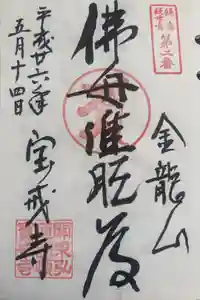 第二番
金龍山
佛母准胝尊
宝戒寺
平成廿六年
五月十四日